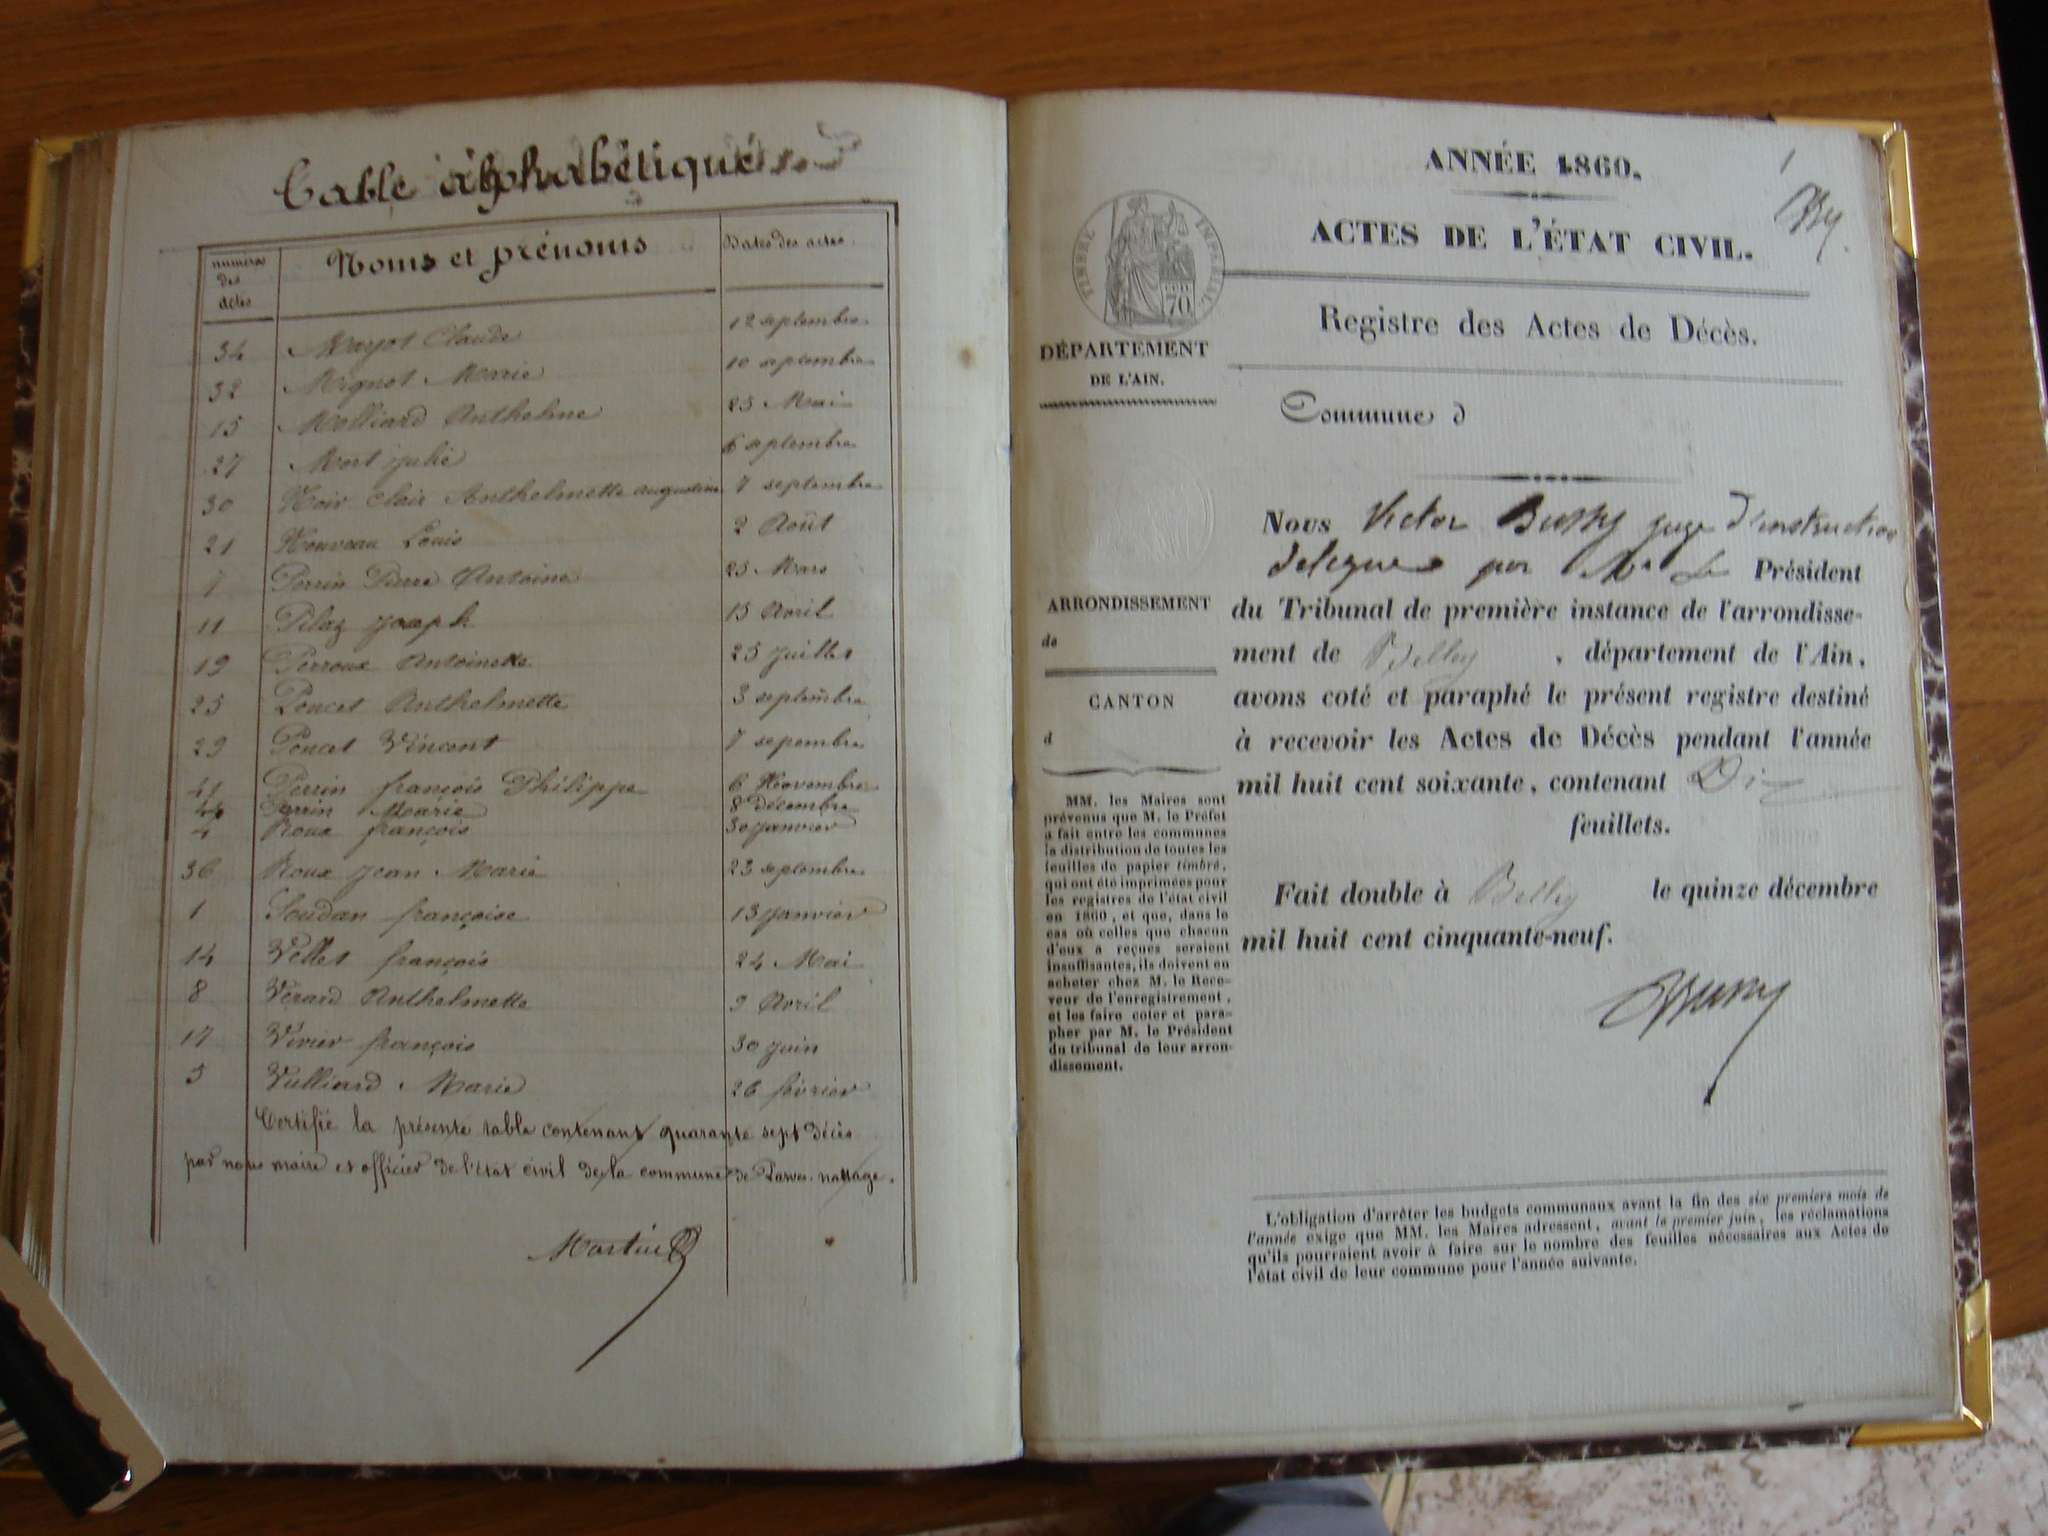 Table alphabétique
numéros des actes
Noms et prénoms
Dates des actes
34 Mayot Claude 12 septembre
32 Mignot Marie 10 septembre
15 Molliard Anthelme 25 Mai
27 Mort julie 6 septembre
30 Noir Clair Anthelmette augustine 7 septembre
21 Nouveau Louis 2 Août
7 Perrin Pierre Antoine 25 Mars
11 Pilaz joseph 15 Avril
19 Perroux Antoinette 25 juillet
25 Poncet Anthelmette 3 septembre
29 Poncet Vincent 7 sepembre
41 Perrin françois Philippe 6 Novembre
Perrin Marie 8 décembre
4 Roux françois 30 janvier
36 Roux jean Marie 23 septembre
1 Soudan françoise 13 janvier
14 Vellet françois 24 Mai
8 Vérard Anthelmette 9 Avril
17 Vivier françois 30 juin
5 Vulliard Marie 26 février
Certifié la présente table contenant quarante sept décès
par nous maire et officier de l'état civil de la commune de Parves-nattage.
Martin
1
ANNÉE 1860.
ACTES DE L'ÉTAT CIVIL.
TIMBRE IMPÉRIAL
70
Registre des Actes de Décès.
DÉPARTEMENT
DE L'AIN.
Commune d
Nous Victor Bussy juge d'instruction
délégué par Mr Le Président
du Tribunal de première instance de l'arrondisse-
ment de Belley , département de l'Ain,
avons coté et paraphé le présent registre destiné
à recevoir les Actes de Décès pendant l'année
mil huit cent soixante, contenant Dix
feuillets.
Fait double à Belley le quinze décembre
mil huit cent cinquante-neuf.
Bussy
ARRONDISSEMENT
de
CANTON
d
MM. les Maires sont
prévenus que M. le Préfet
a fait entre les communes
la distribution de toutes les
feuilles de papier timbré,
qui ont été imprimées pour
les registres de l'état civil
en 1860, et que, dans le
cas où celles que chacun
d'eux a reçues seraient
insuffisantes, ils doivent en
acheter chez M. le Rece-
veur de l'enregistrement,
et les faire coter et para-
pher par M. le Président
du tribunal de leur arron-
dissement.
L'obligation d'arrêter les budgets communaux avant la fin des six premiers mois de
l'année exige que MM. les Maires adressent, avant le premier juin, les réclamations
qu'ils pourraient avoir à faire sur le nombre des feuilles nécessaires aux Actes de
l'état civil de leur commune pour l'année suivante.